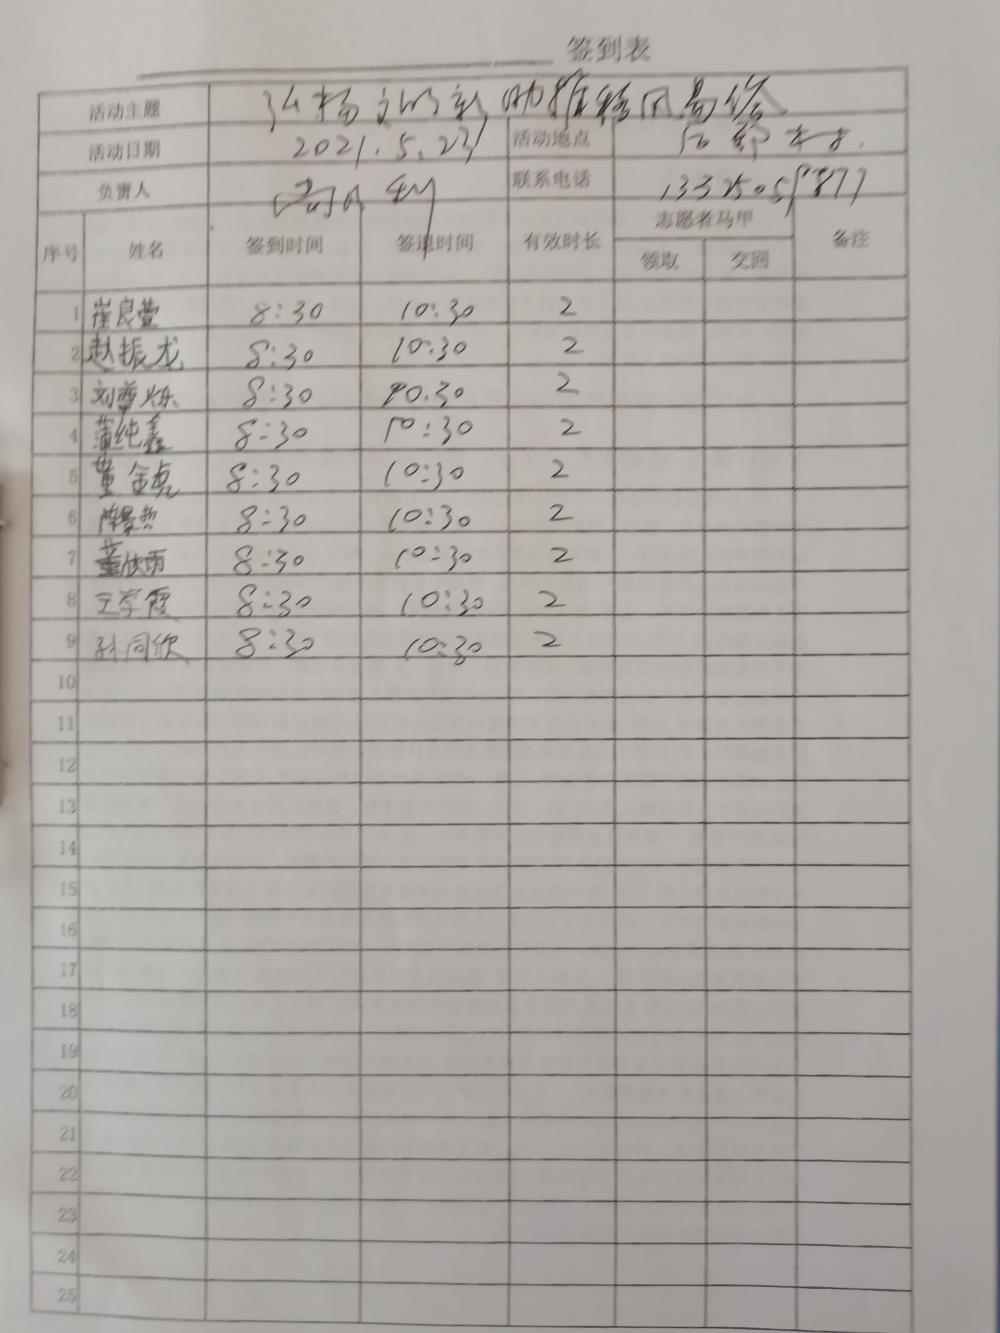 签到表
活动主题 弘扬文明新 助推移风易俗
活动日期 2021.5.23 活动地点
负责人 联系电话
序号 姓名 签到时间 签退时间 有效时长 志愿者马甲 备注
领取 交回
1 崔良萱 8:30 10:30 2
2 赵振龙 8:30 10:30 2
3 刘 烁 8:30 10.30 2
4 蒲纯鑫 8:30 10:30 2
5 董金虎 8:30 10:30 2
6 8:30 10:30 2
7 董欣雨 8:30 10:30 2
8 王学霞 8:30 10:30 2
9 孙同欣 8:30 10:30 2
10
11
12
13
14
15
16
17
18
19
20
21
22
23
24
25